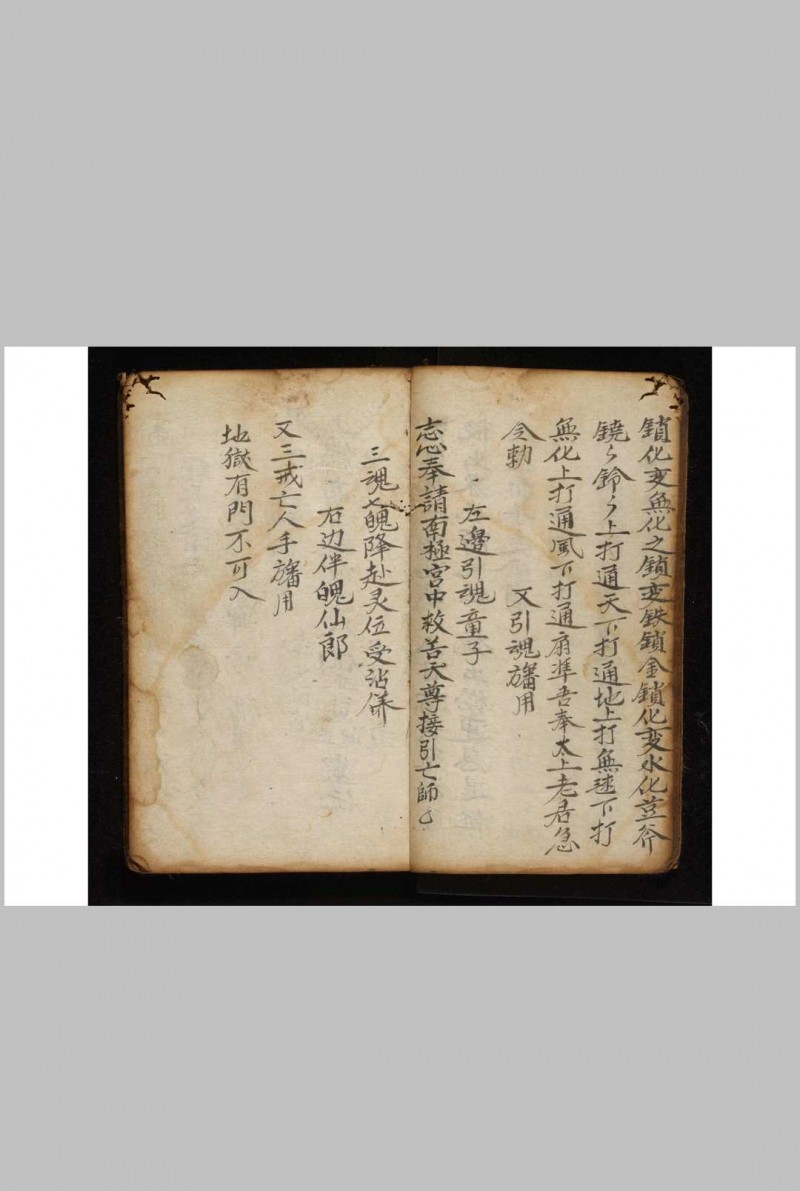 鎖化变無化之鎖变鉄鎖金鎖化变水化荳斧
鐃々鈴々上打通天下打通地上打無毬下打
無化上打通風下打通扇準吾奉太上老君急
令勅
又引魂旛用
左邊引魂童子
志心奉請南極宮中救苦天尊接引亡師
三魂七魄降赴灵位受沾
右边伴魄仙郎
又三戒亡人手旛用
地獄有門不可入